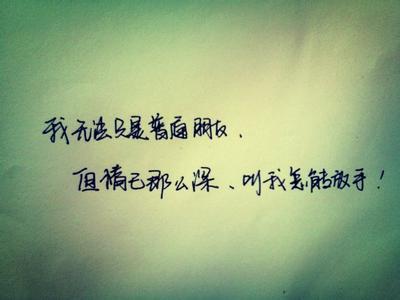 我无法只是普通朋友、
但情已那么深、叫我怎能放手！